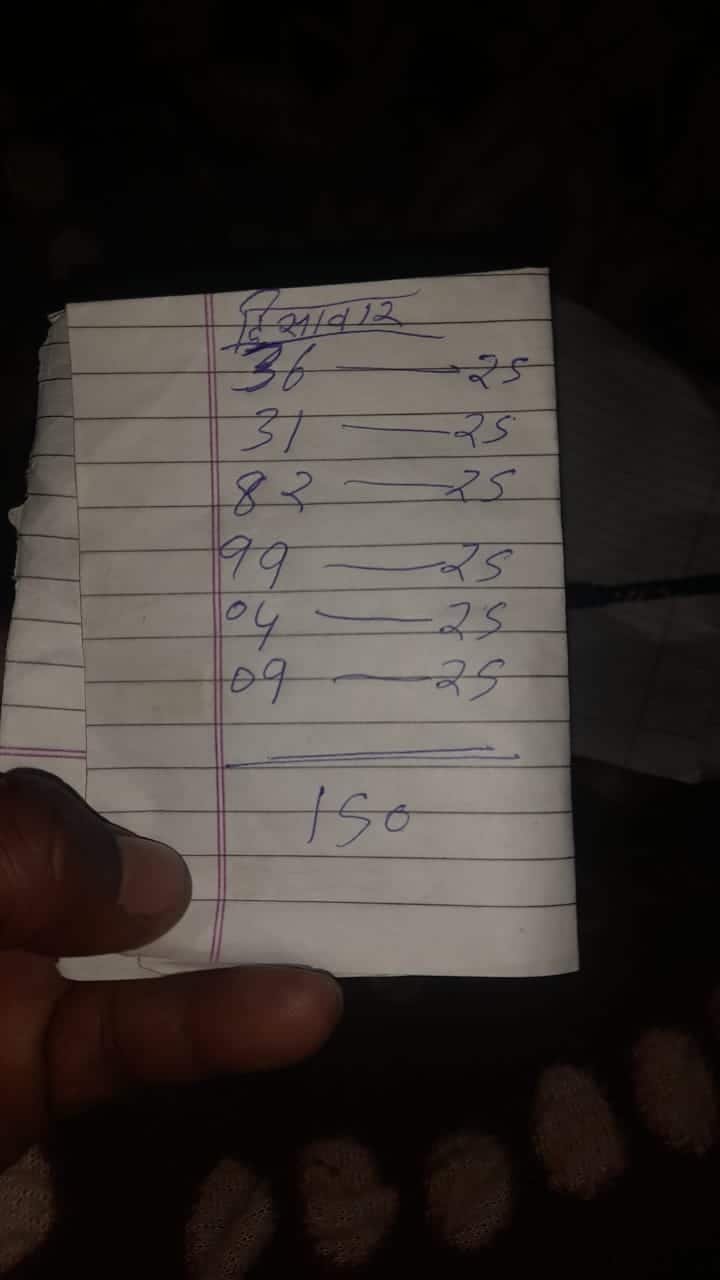 दिसावर
36 — 25
31 — 25
82 — 25
99 — 25
04 — 25
09 — 25
150